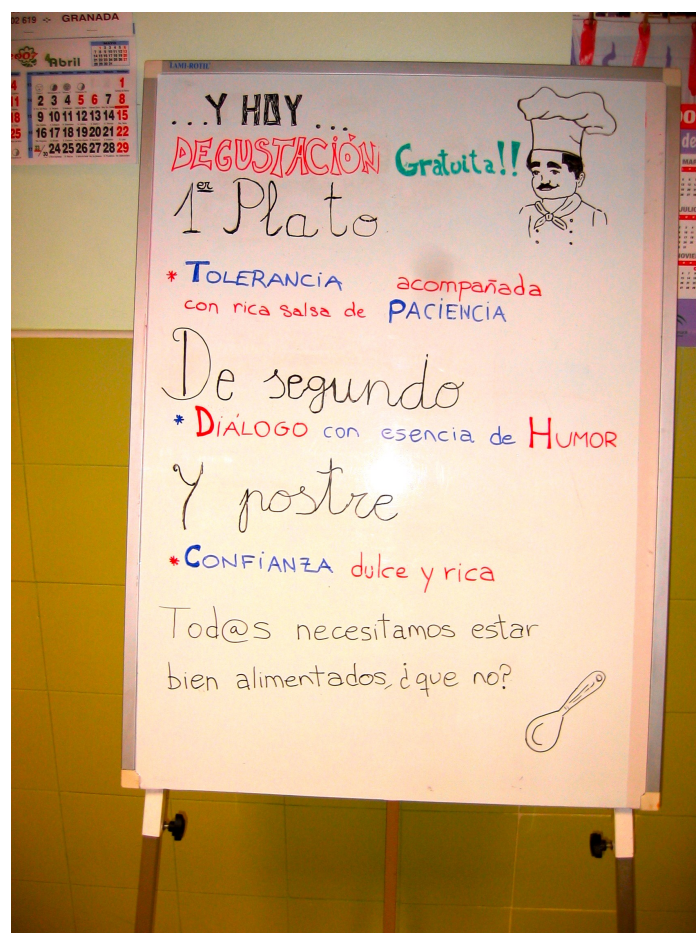 02 619 GRANADA
2007 Abril
1
2 3 4 5 6 7 8
9 10 11 12 13 14 15
16 17 18 19 20 21 22
24 25 26 27 28 29
LAMI-ROTIC
...Y HOY...
DEGUSTACIÓN Gratuita!!
1er Plato
* TOLERANCIA acompañada
con rica salsa de PACIENCIA
De segundo
* DIÁLOGO con esencia de HUMOR
Y postre
* CONFIANZA dulce y rica
Tod@s necesitamos estar
bien alimentados, ¿que no?